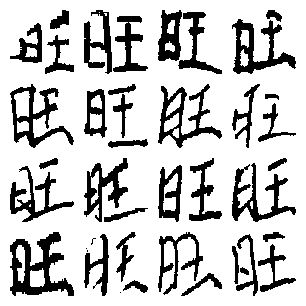 旺旺旺旺
旺旺旺旺
旺旺旺旺
旺旺旺旺